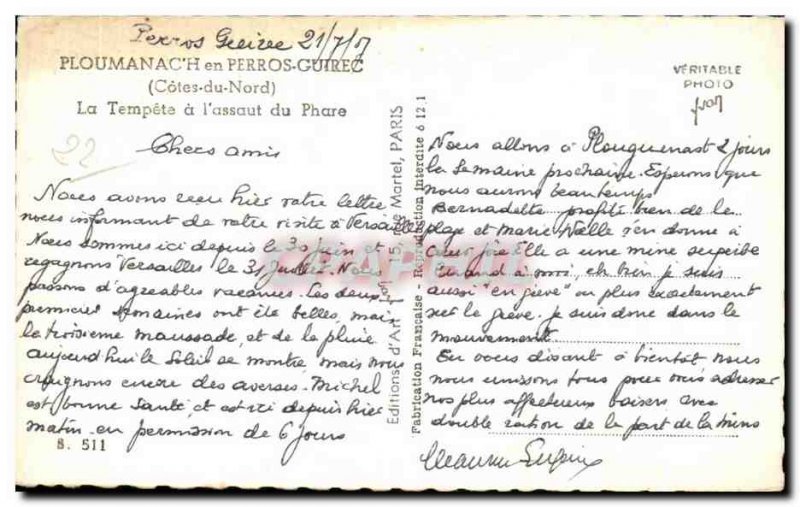 Perros Guirec 21/7/57
PLOUMANAC'H en PERROS-GUIREC
(Côtes-du-Nord)
La Tempête à l'assaut du Phare
22
Chers amis
Nous avons reçu hier votre lettre
nous informant de votre visite à Versailles
Nous sommes ici depuis le 30 juin et
regagnons Versailles le 31 juillet. Nous
passons d'agréables vacances. Les deux
premières semaines ont été belles, mais
la troisième maussade, et de la pluie
aujourd'hui le Soleil se montre, mais nous
craignons encore des averses. Michel
est bonne Santé, et est ici depuis hier
matin en permission de 6 jours
B. 511
Editions d'Art 15, rue Martel, PARIS
Fabrication Française - Reproduction Interdite 6 12.1
VÉRITABLE
PHOTO
Nous allons à Plouguenast 2 jours
la Semaine prochaine. Espérons que
nous aurons beau temps
Bernadette profite bien de la
plage et Marie s'en donne à
cœur joie. Elle a une mine superbe
Quand à moi, eh bien je suis
aussi "en grève" ou plus exactement
sur la grève. je suis donc dans le
mouvement
En vous disant à bientôt nous
nous unissons tous pour vous adresser
nos plus affectueux baisers avec
double ration de la part de la
CPARAMA